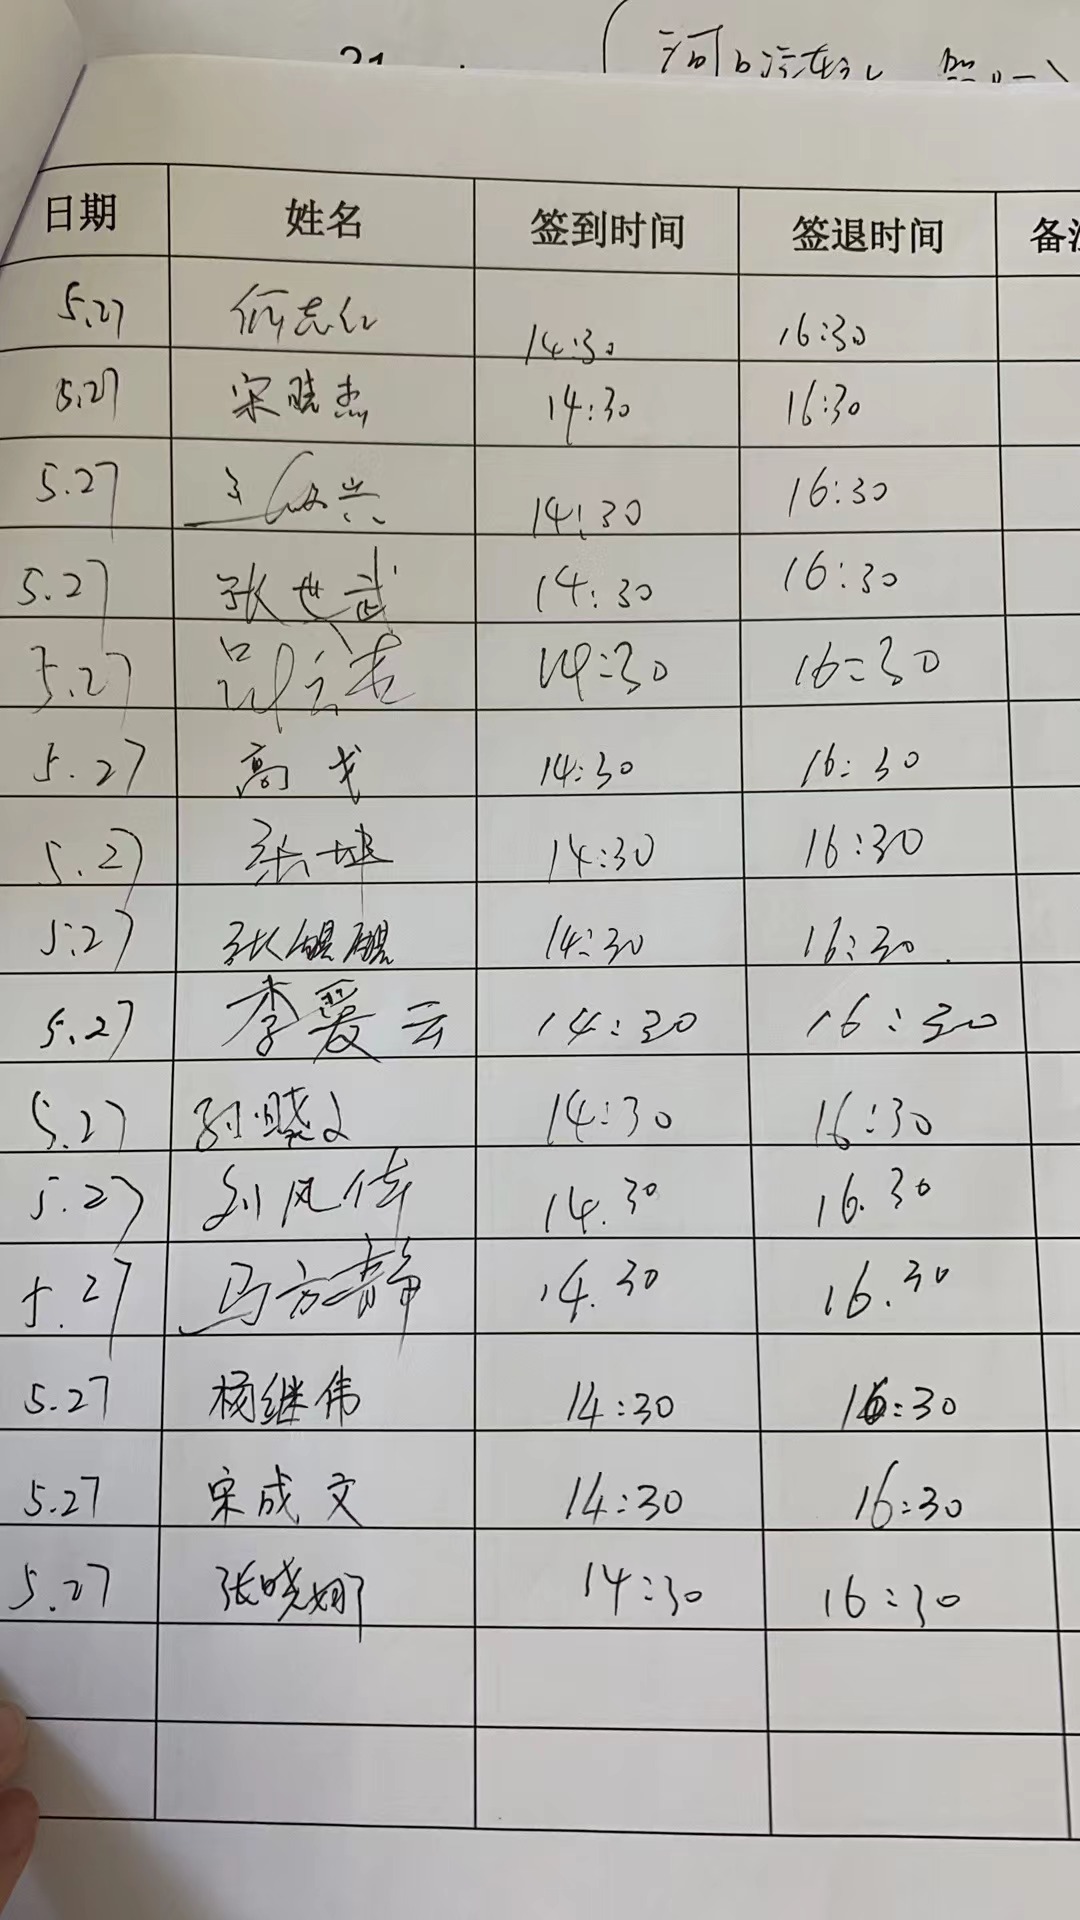 21
日期 姓名 签到时间 签退时间 备注
5.27 14:30 16:30
5.27 宋晓杰 14:30 16:30
5.27 14:30 16:30
5.27 张世武 14:30 16:30
5.27 14:30 16:30
5.27 高戈 14:30 16:30
5.27 张坤 14:30 16:30
5.27 14:30 16:30
5.27 李爱云 14:30 16:30
5.27 孙晓文 14:30 16:30
5.27 刘凤伟 14.30 16.30
5.27 马方静 14.30 16.30
5.27 杨继伟 14:30 16:30
5.27 宋成文 14:30 16:30
5.27 张晓娜 14:30 16:30